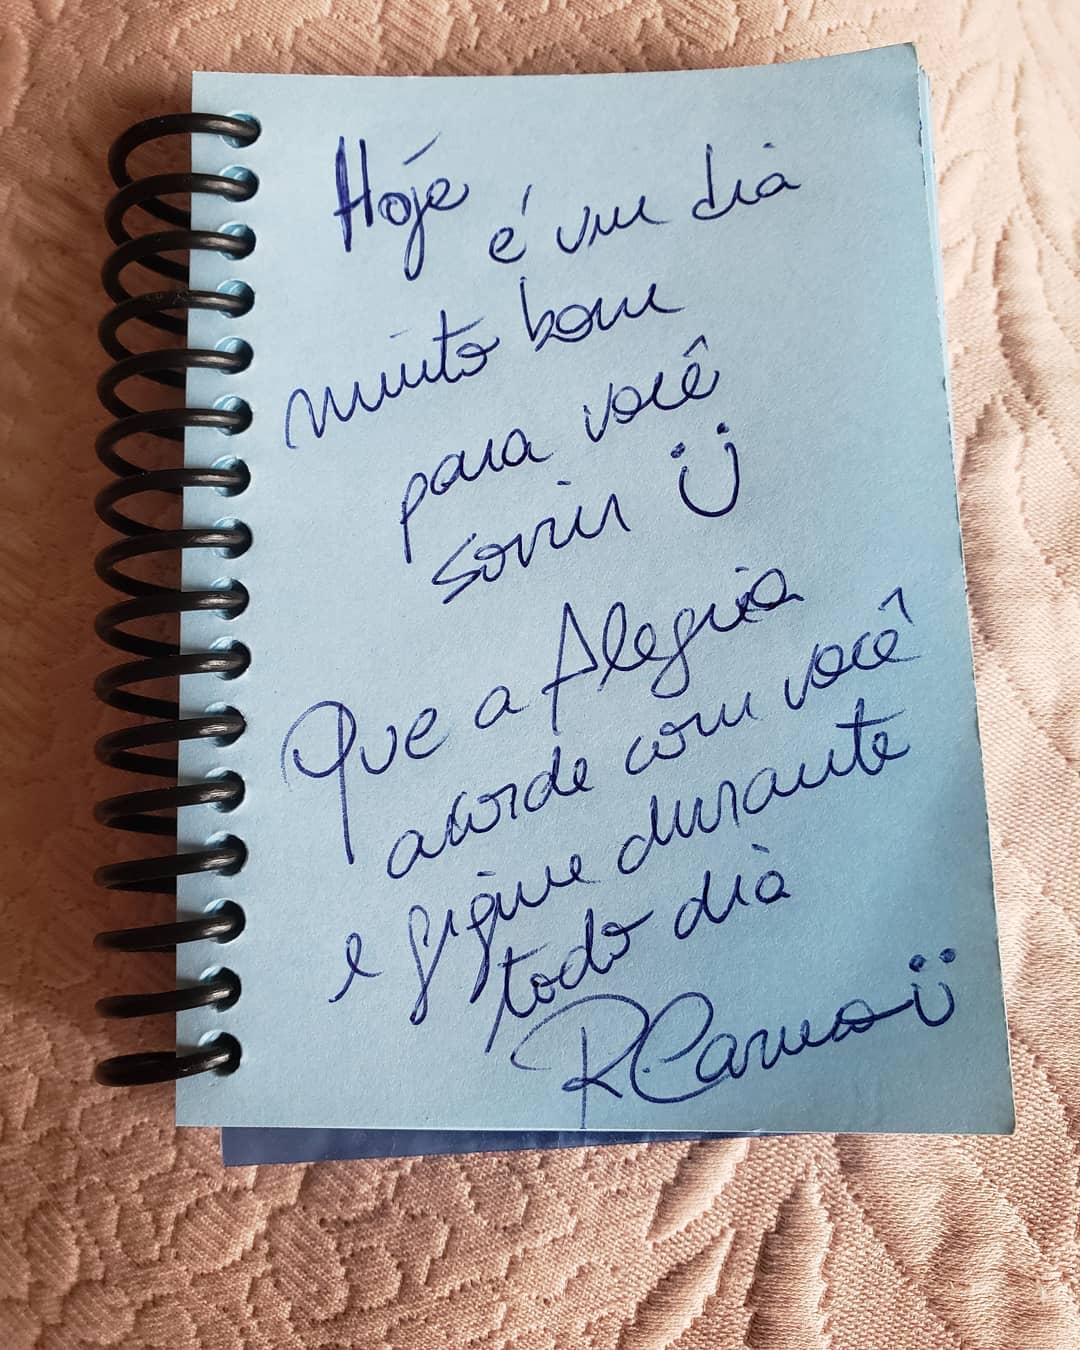 Hoje é um dia
muito bom
para você
sorrir Ü
Que a Alegria
acorde com você
e fique durante
todo dia
R.Carmo Ü